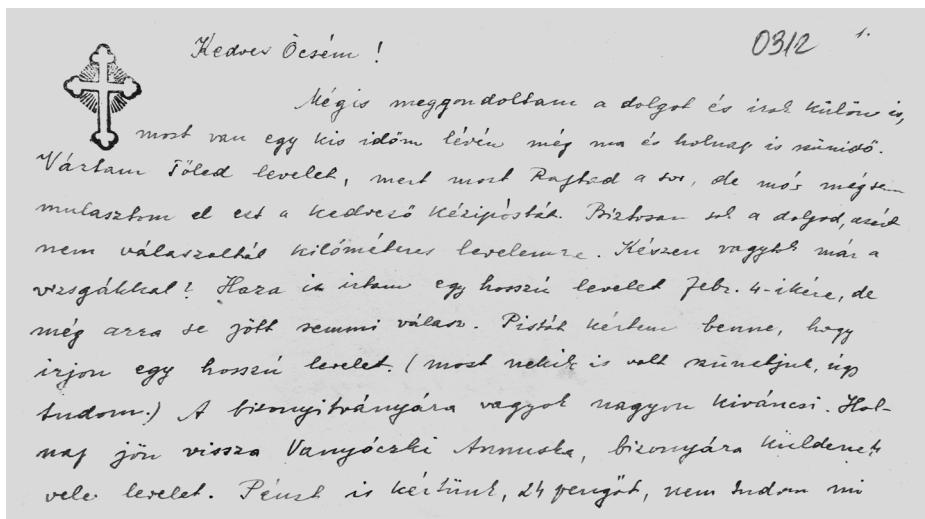 Kedves Öcsém!
0312 1.
Mégis meggondoltam a dolgot és irok külön is,
most van egy kis időm lévén még ma és holnap is szünidő.
Vártam Tőled levelet, mert most Rajtad a sor, de már mégsem
mulasztom el ezt a kedvező kézipóstát. Biztosan sok a dolgod, azért
nem válaszoltál kilóméteres levelemre. Készen vagytok már a
vizsgákkal? Haza is irtam egy hosszú levelet febr. 4-ikére, de
még arra se jött semmi válasz. Pistát kértem benne, hogy
irjon egy hosszú levelet. (most nekik is volt szünetjük, úgy
tudom.) A bizonyitványára vagyok nagyon kiváncsi. Hol-
nap jön vissza Vanyóczki Annuska, bizonyára küldenek
vele levelet. Pénzt is kértünk, 24 pengőt, nem tudom mi